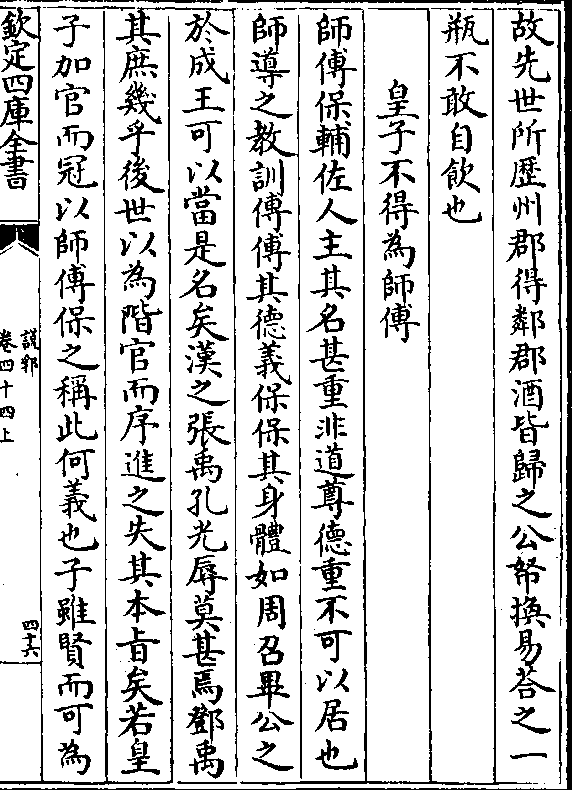 故先世所歷州郡得鄰郡酒皆歸之公帑換易答之一
瓶不敢自飲也
皇子不得為師傅
師傅保輔佐人主其名甚重非道尊德重不可以居也
師導之教訓傅傅其德義保保其身體如周召畢公之
於成王可以當是名矣漢之張禹孔光辱莫甚焉鄧禹
其庶幾乎後世以為階官而序進之失其本旨矣若皇
子加官而冠以師傅保之稱此何義也子雖賢而可為
欽定四庫全書
說郛
卷四十四上
四十六